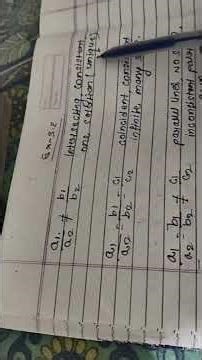 Ex-3.2
a1/a2 ≠ b1/b2 Intersecting, consistent
one solution (unique)
a1/a2 = b1/b2 = c1/c2 coincident,
infinite many
a1/a2 = b1/b2 ≠ c1/c2 parallel lines, no s
inconsistent